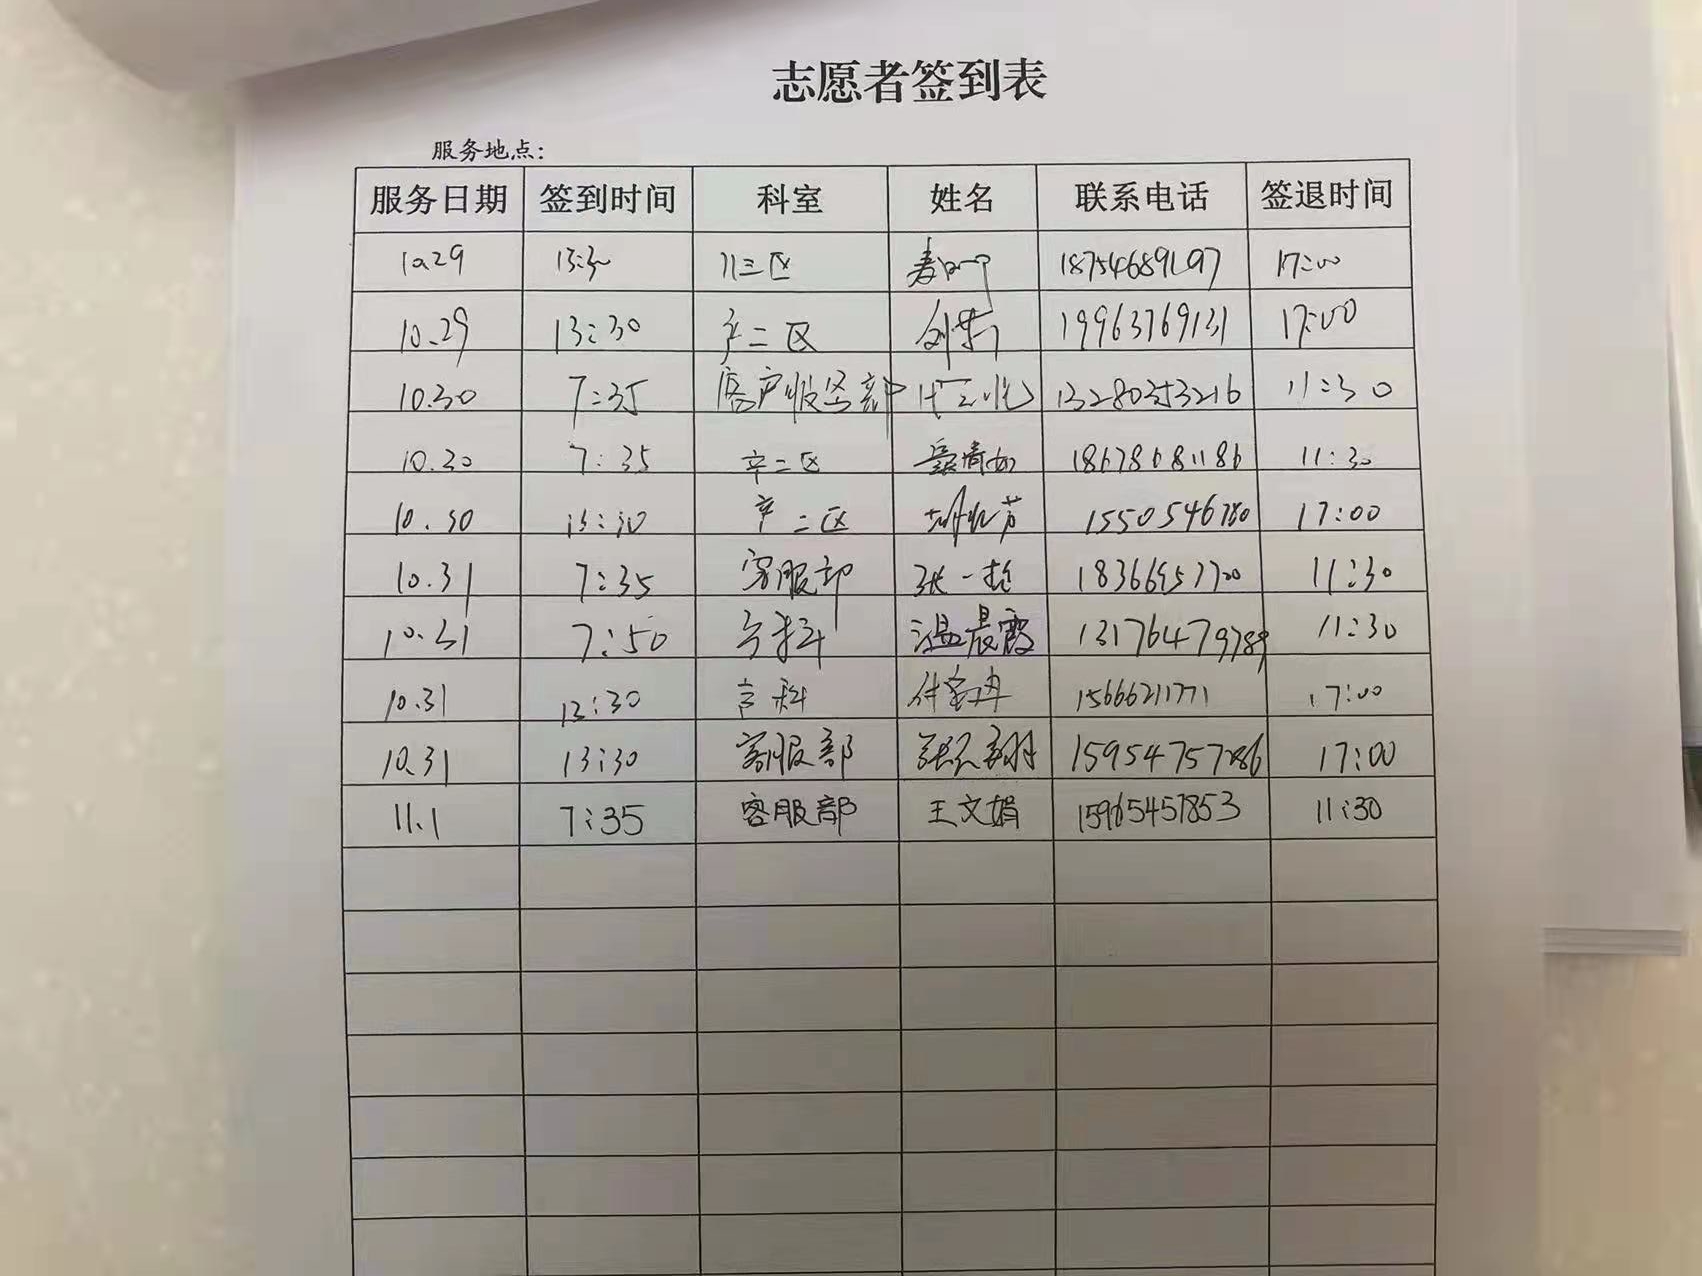 志愿者签到表
服务地点：
服务日期 签到时间 科室 姓名 联系电话 签退时间
10.29 13:30 儿三区 17:00
10.29 13:30 产二区 19963769131 17:00
10.30 7:35 客户服务部 13280353216 11:30
10.30 7:35 产二区 18678681186 11:30
10.30 13:30 产二区 1550546780 17:00
10.31 7:35 客服部 张一 11:30
10.31 7:50 温晨霞 13176479789 11:30
10.31 13:30 15666211771 17:00
10.31 13:30 客服部 15954757286 17:00
11.1 7:35 客服部 王文娟 15965457853 11:30